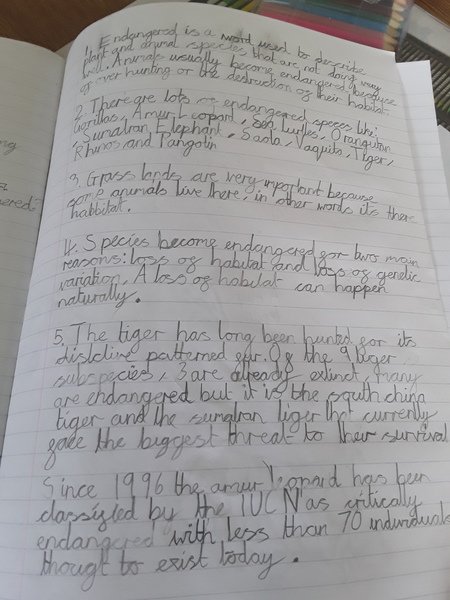 ng
ered?
1. Endangered is a word used to describe
plant and animal species that are not doing very
well. Animals usually become endangered because
of over hunting or the destruction of their habitat
2. There are lots of endangered species like:
Gorillas, Amur Leopard, Sea turtles, Orangutan
Sumatran Elephant, Saola, Vaquita, Tiger,
Rhinos and Pangolin
3. Grass lands are very important because
some animals live there, in other words its there
habbitat.
4. Species become endangered for two main
reasons: loss of habitat and loss of genetic
variation, A loss of habitat can happen
naturally.
5. The tiger has long been hunted for its
patterned fur. Of the 9 tiger
subspecies, 3 are already extinct, many
are endangered but it is the south china
tiger and the sumatran tiger that currently
face the biggest threat to their survival
Since 1996 the amur leopard has been
classified by the IUCN as critically
endangered with less than 70 individuals
thougt to exist today.